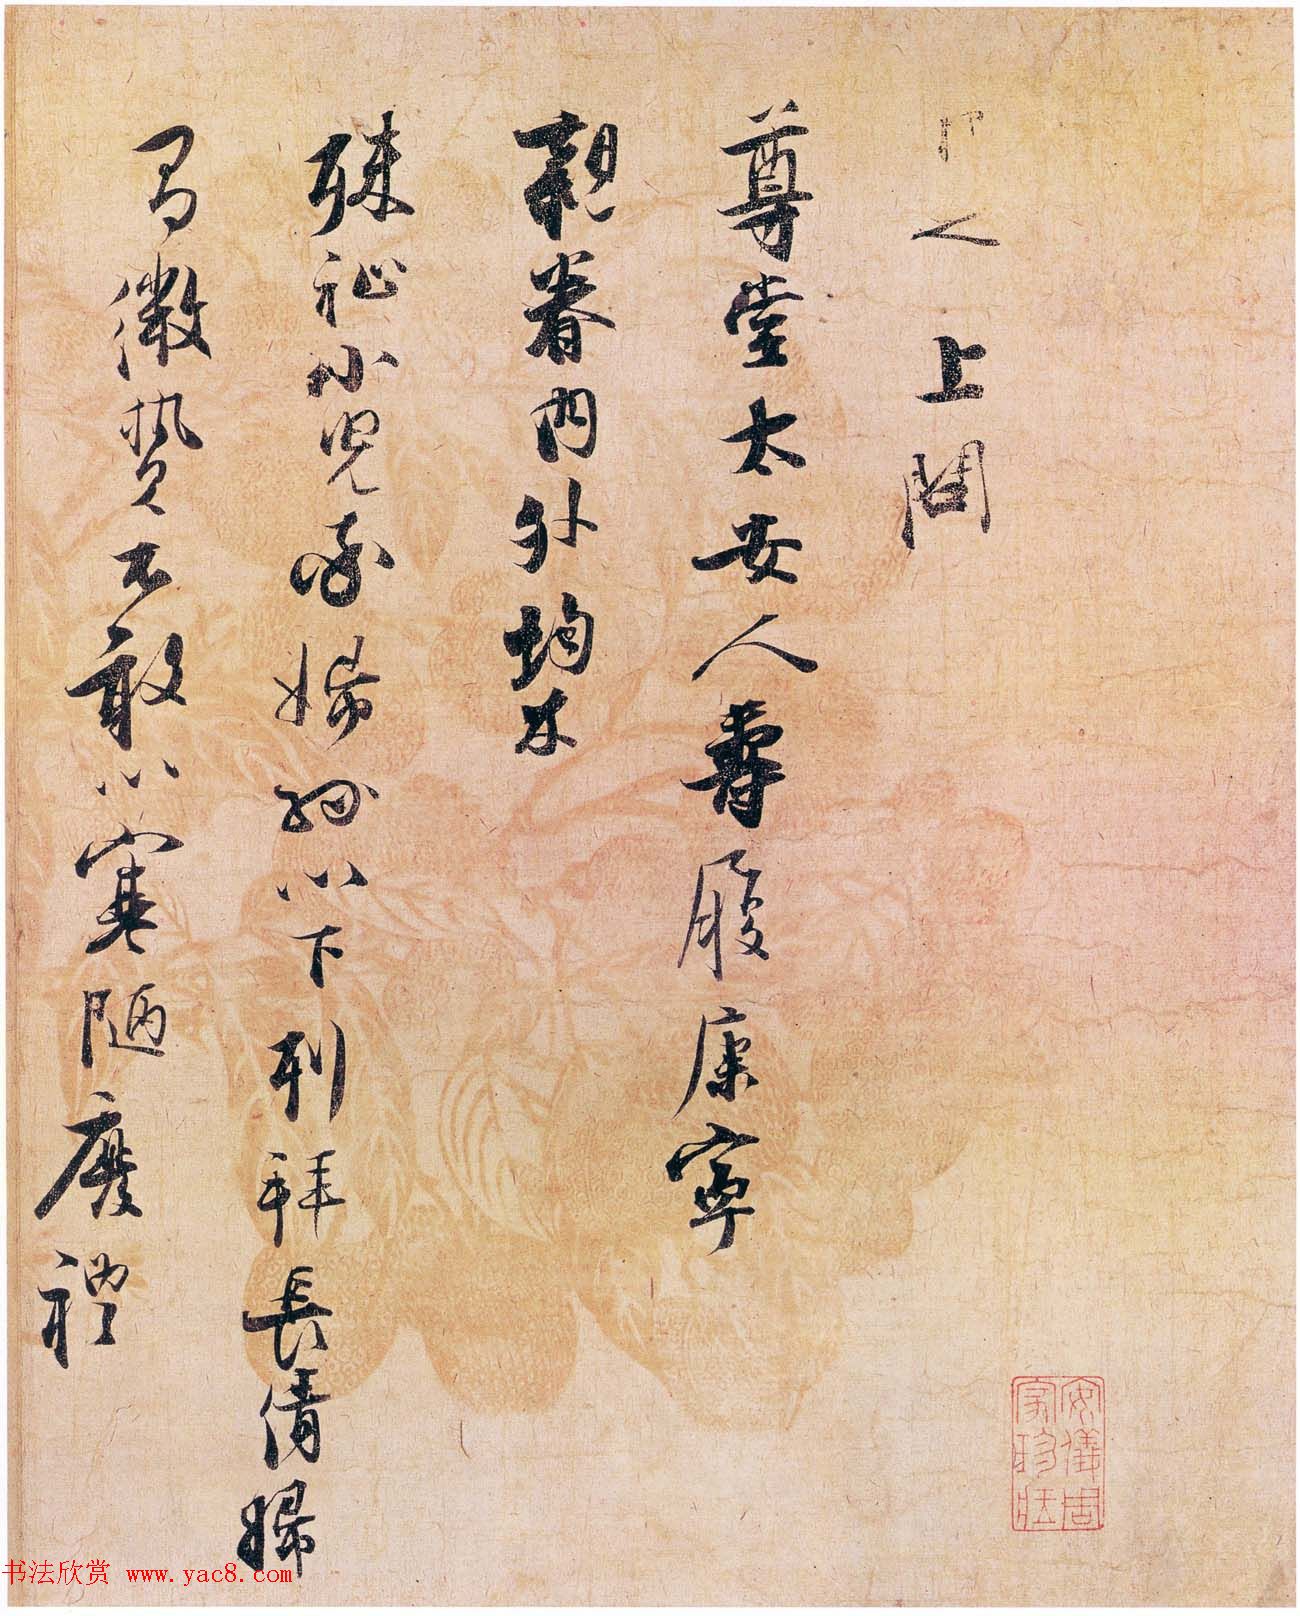 上問
尊堂太安人壽履康寧
親眷內外均
殊祉小兒婦孫以下列拜長倩婦
微贄不敢以寒陋廢禮
安儀周
家珍藏
书法欣赏 www.yac8.com